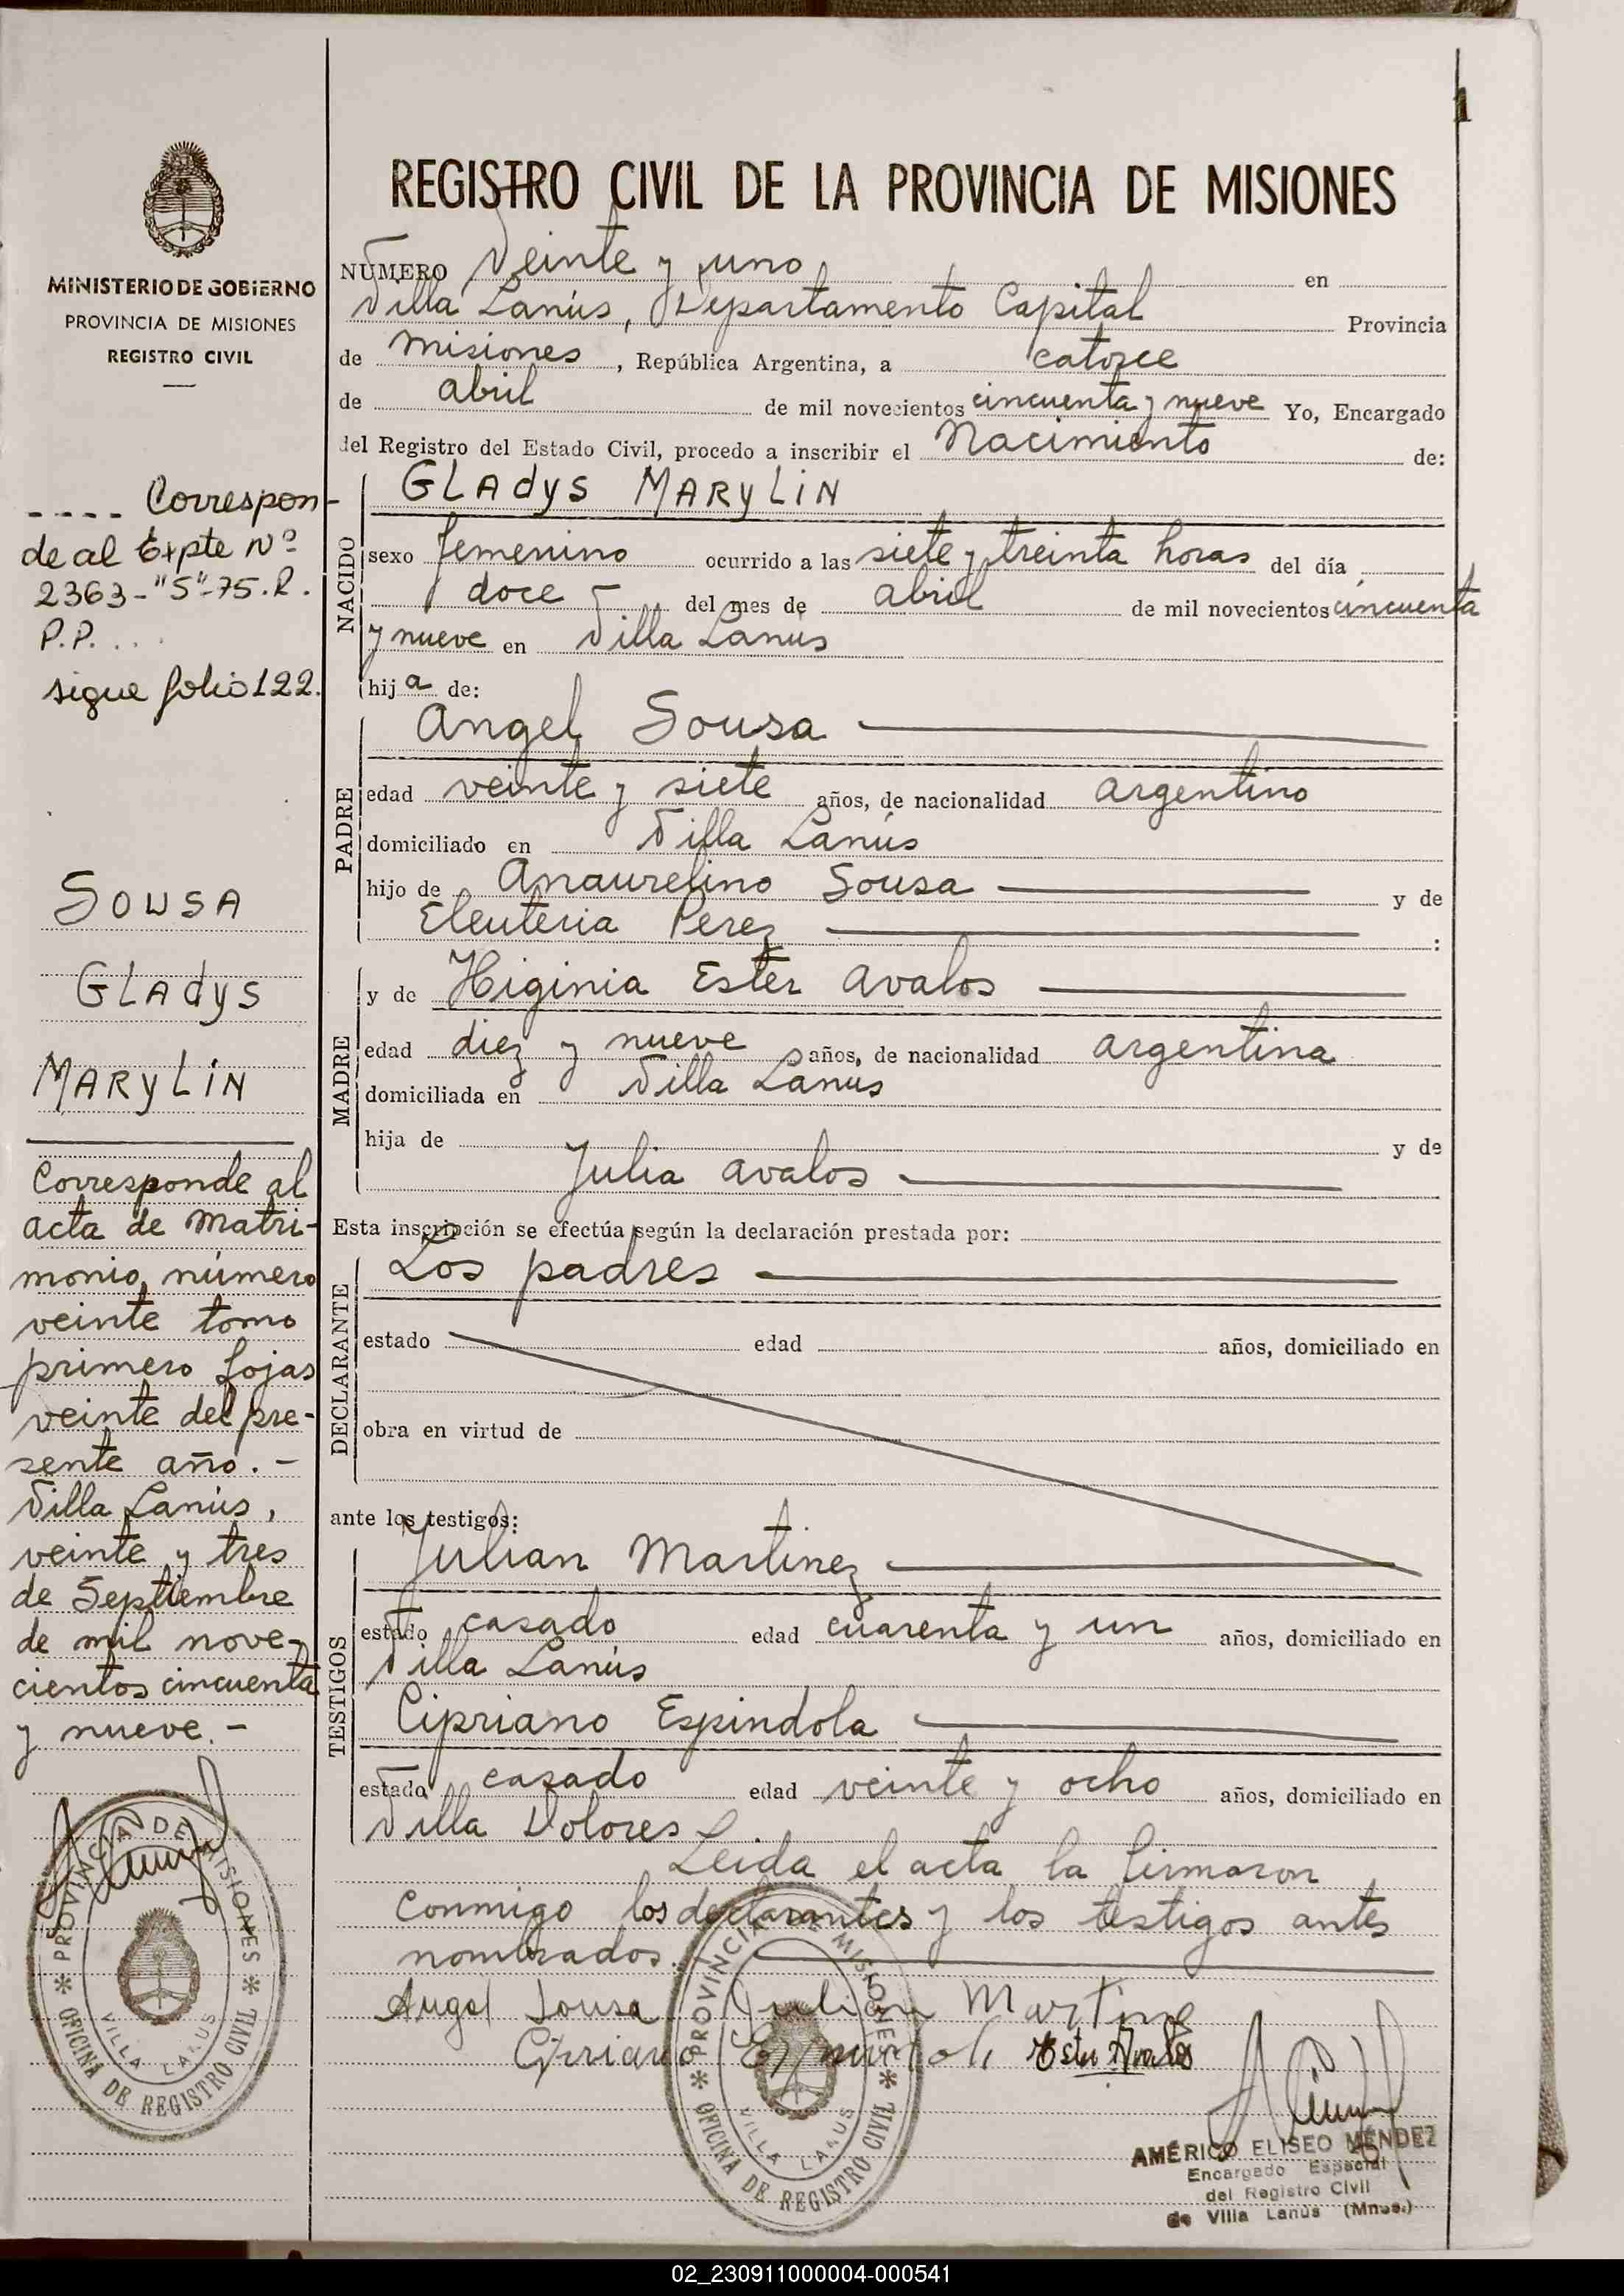 1
REGISTRO CIVIL DE LA PROVINCIA DE MISIONES
MINISTERIO DE GOBIERNO
PROVINCIA DE MISIONES
REGISTRO CIVIL
NÚMERO Veinte y uno en
Villa Lanús, Departamento Capital Provincia
de Misiones, República Argentina, a catorce
de abril de mil novecientos cincuenta y nueve Yo, Encargado
del Registro del Estado Civil, procedo a inscribir el Nacimiento de:
NACIDO
GLAdyS MARyLiN
sexo femenino ocurrido a las siete y treinta horas del día
doce del mes de abril de mil novecientos cincuenta
y nueve en Villa Lanús
hija de:
PADRE
Angel Sousa
edad veinte y siete años, de nacionalidad argentino
domiciliado en Villa Lanús
hijo de Anaurelino Sousa y de
Eleuteria Perez :
MADRE
y de Higinia Ester Avalos
edad diez y nueve años, de nacionalidad argentina
domiciliada en Villa Lanús
hija de y de
Julia Avalos
Esta inscripción se efectúa según la declaración prestada por:
DECLARANTE
Los padres
estado edad años, domiciliado en
obra en virtud de
ante los testigos:
TESTIGOS
Julian Martinez
estado casado edad cuarenta y un años, domiciliado en
Villa Lanús
Cipriano Espindola
estado casado edad veinte y ocho años, domiciliado en
Villa Dolores.
Leida el acta la firmaron
conmigo los declarantes y los testigos antes
nombrados.-
Angel Sousa Julian Martinez
Cipriano Espindola Ester Avalos
AMÉRICO ELISEO MENDEZ
Encargado Especial
del Registro Civil
de Villa Lanús (Mnes.)
PROVINCIA DE MISIONES
OFICINA DE REGISTRO CIVIL
VILLA LANUS
---- Correspon-
de al Expte Nº
2363-"S"-75.R.
P.P. ...
sigue folio 122.
SOUSA
GLAdyS
MARyLiN
Corresponde al
acta de Matri-
monio número
veinte tomo
primero fojas
veinte del pre-
sente año.-
Villa Lanús,
veinte y tres
de Septiembre
de mil nove-
cientos cincuenta
y nueve.-
PROVINCIA DE MISIONES
OFICINA DE REGISTRO CIVIL
VILLA LANUS
02_230911000004-000541